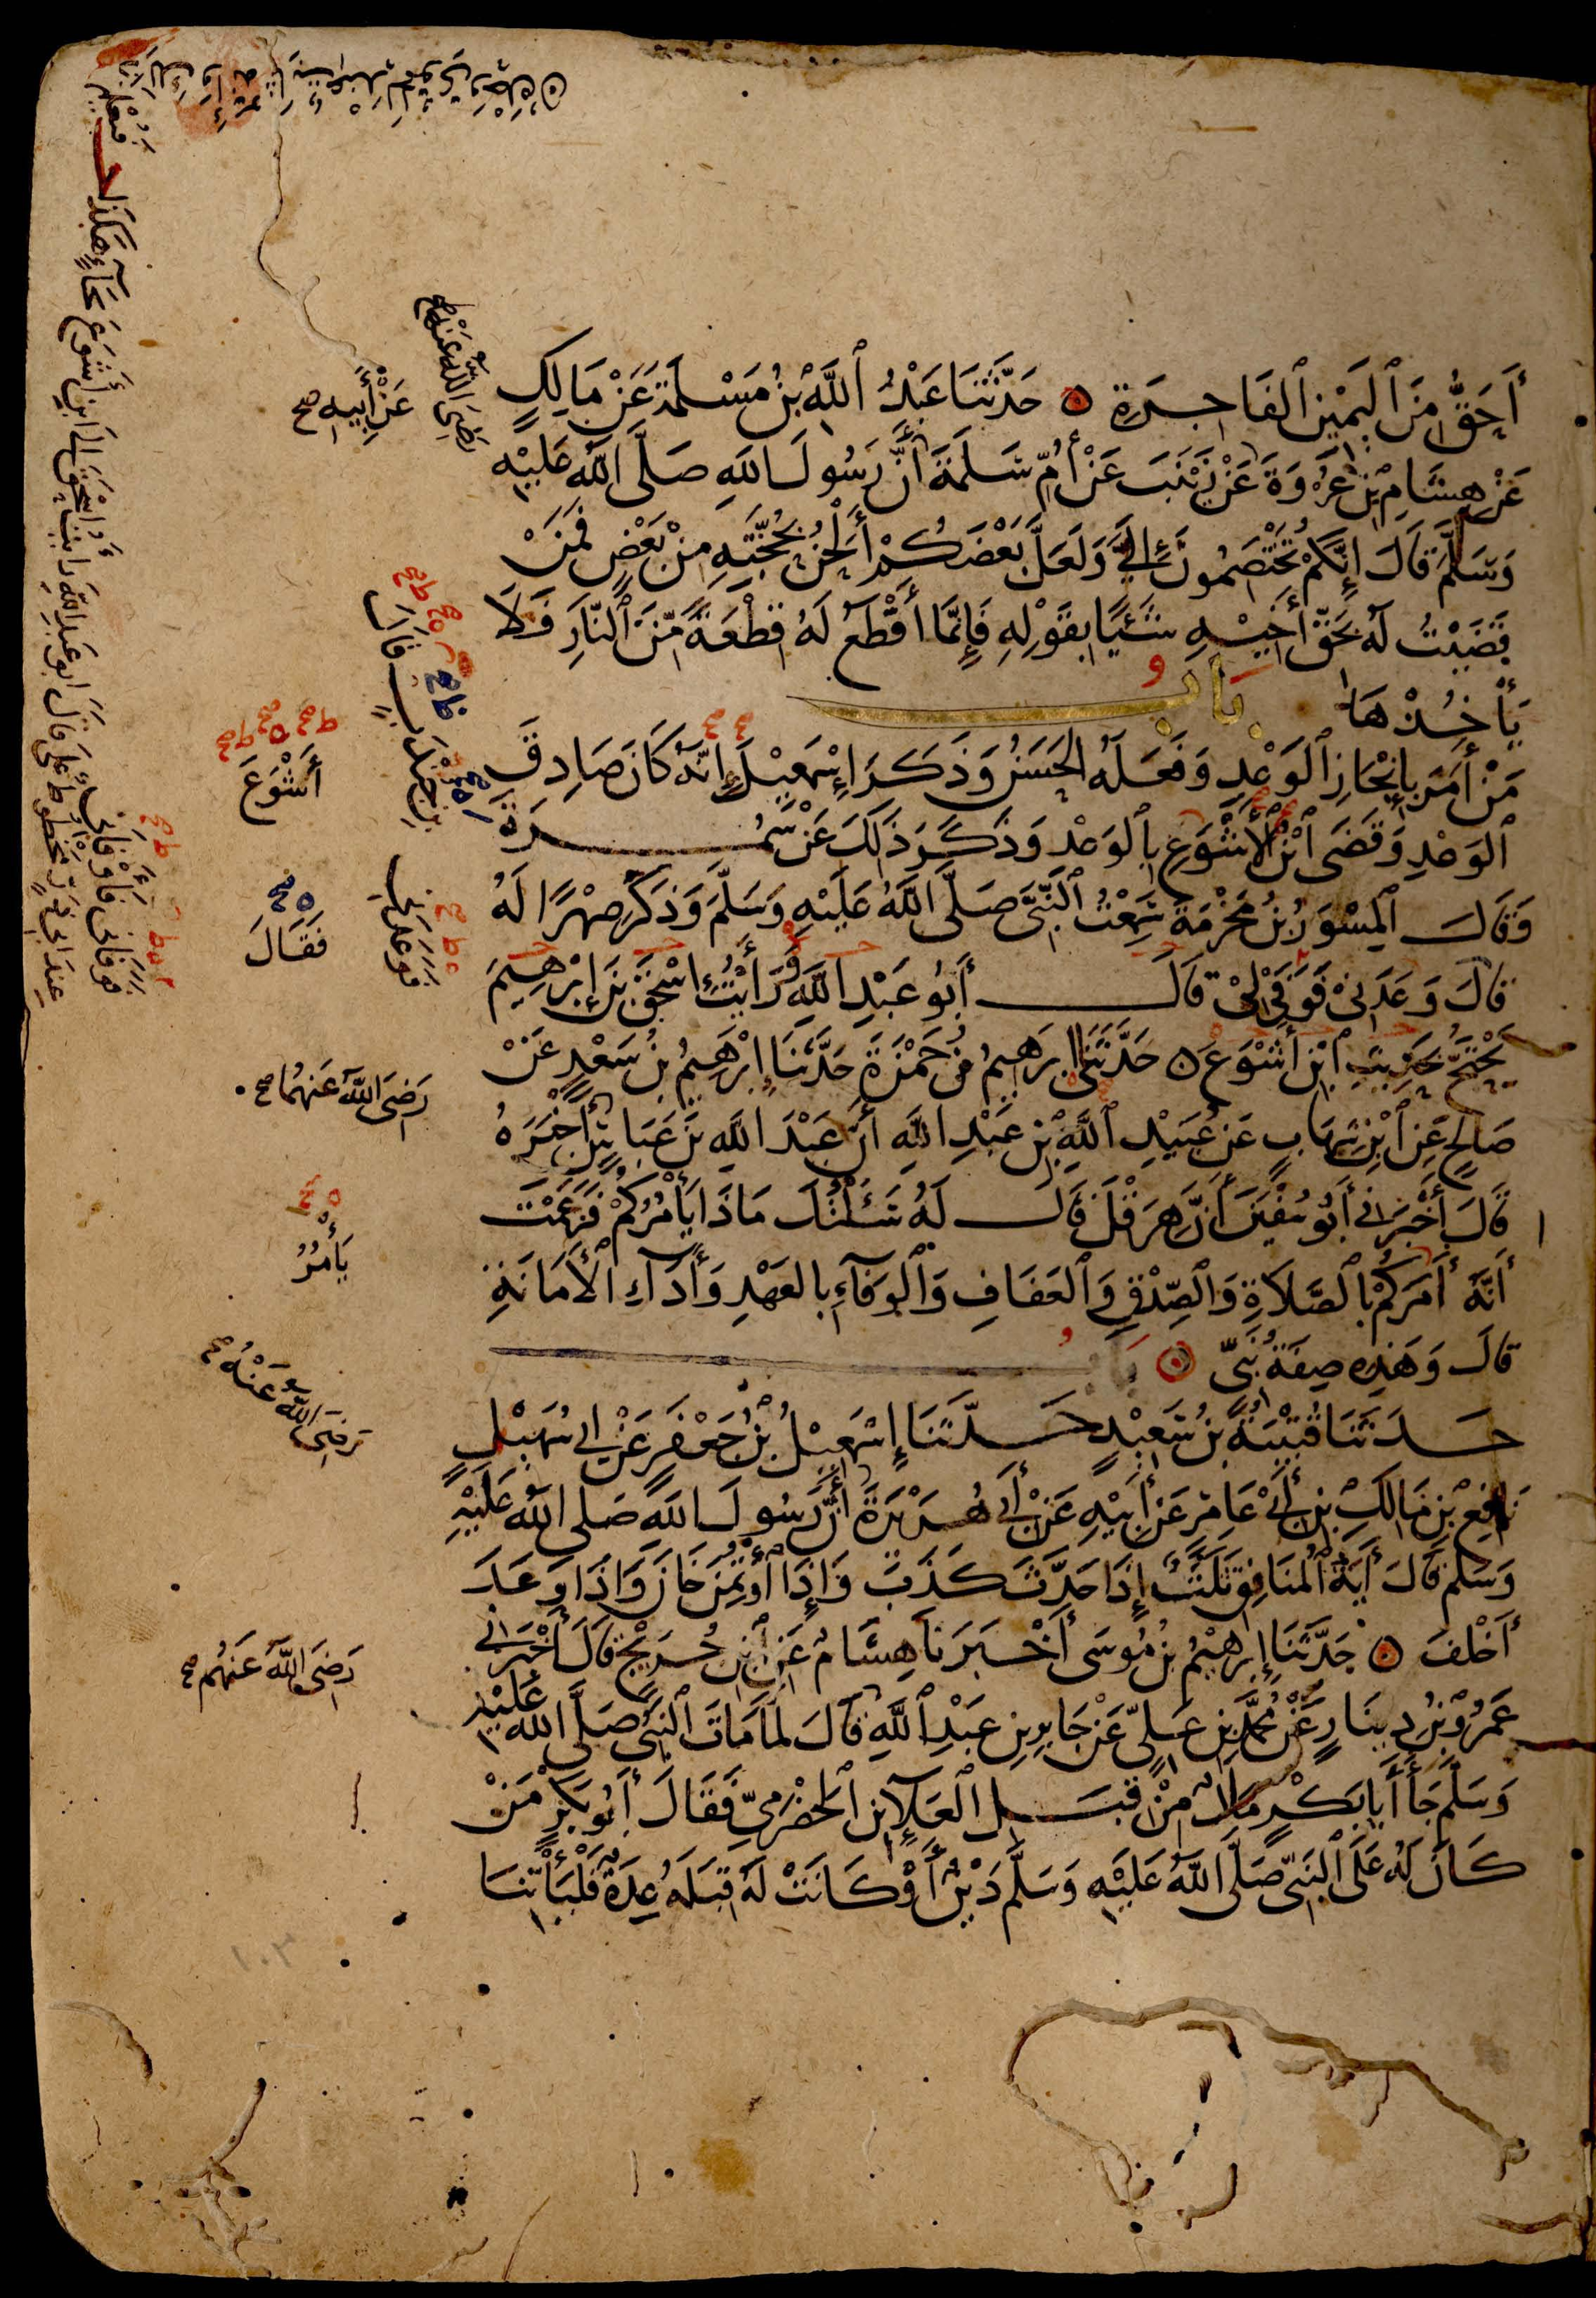 أَحَقُّ مِنَ ٱلْيَمِيْنِ ٱلفَاجِرَةِ ۞ حَدَّثَنَا عَبْدُ ٱللَّهِ بْنُ مَسْلَمَةَ عَنْ مَالِكٍ
عَنْ هِشَامِ بْنِ عُرْوَةَ عَنْ زَيْنَبَ عَنْ أُمِّ سَلَمَةَ أَنَّ رَسُولَ اللهِ صَلَّى اللهُ عَلَيْهِ
وَسَلَّمَ قَالَ إِنَّكُمْ تَخْتَصِمُونَ إِلَيَّ وَلَعَلَّ بَعْضَكُمْ أَلْحَنُ بِحُجَّتِهِ مِنْ بَعْضٍ فَمَنْ
قَضَيْتُ لَهُ بِحَقِّ أَخِيْهِ شَيْئًا بِقَوْلِهِ فَإِنَّمَا أَقْطَعُ لَهُ قِطْعَةً مِّنَ ٱلنَّارِ فَلَا
يَأْخُذْهَا
بَابُ
مَنْ أَمَرَ بِإِنْجَازِ ٱلوَعْدِ وَفَعَلَهُ الحَسَنُ وَذَكَرَ إِسْمَعِيْلَ إِنَّهُ كَانَ صَادِقَ
ٱلوَعْدِ وَقَضَى ٱبْنُ ٱلأَشْوَعِ بِٱلوَعْدِ وَذَكَرَ ذَلِكَ عَنْ سَمُرَةَ
وَقَالَ ٱلمِسْوَرُ بْنُ مَخْرَمَةَ سَمِعْتُ ٱلنَّبِيَّ صَلَّى اللَّهُ عَلَيْهِ وَسَلَّمَ وَذَكَرَ صِهْرًا لَهُ
قَالَ وَعَدَنِيْ فَوَفَى لِيْ قَالَ أَبُو عَبْدِ اللَّهِ وَرَأَيْتُ إِسْحَقَ بْنَ إِبْرَهِيمَ
يَحْتَجُّ بِحَدِيْثِ ٱبْنِ أَشْوَعَ ۞ حَدَّثَنَى إِبْرَهِيمُ بْنُ حَمْزَةَ حَدَّثَنَا إِبْرَهِيْمُ بْنُ سَعْدٍ عَنْ
صَالِحٍ عَنِ ٱبْنِ شِهَابٍ عَنْ عُبَيْدِ ٱللَّهِ بْنِ عَبْدِ اللَّهِ أَنَّ عَبْدَ اللَّهِ بْنَ عَبَّاسٍ أَخْبَرَهُ
قَالَ أَخْبَرَنِي أَبُو سُفْيَنَ أَنَّ هِرَقْلَ قَالَ لَهُ سَئَلْتُكَ مَاذَا يَأْمُرُكُمْ فَزَعَمْتَ
أَنَّهُ أَمَرَكُمْ بِالصَّلَاةِ وَالصِّدْقِ وَٱلعَفَافِ وَٱلْوَفَآءِ بِالعَهْدِ وَأَدَآءِ الأَمَانَةِ
قَالَ وَهَذِهِ صِفَةُ نَبِيٍّ ۞ بَابُ
حَدَّثَنَا قُتَيْبَةُ بْنُ سَعِيْدٍ حَدَّثَنَا إِسْمَعِيْلُ بْنُ جَعْفَرٍ عَنْ أَبِي سُهَيْلٍ
نَافِعِ بْنِ مَالِكِ بْنِ أَبِيْ عَامِرٍ عَنْ أَبِيْهِ عَنْ أَبِي هُرَيْرَةَ أَنَّ رَسُولَ اللهِ صَلَى اللهُ عَلَيْهِ
وَسَلَّمَ قَالَ آيَةُ ٱلمُنَافِقِ ثَلَثٌ إِذَا حَدَّثَ كَذَبَ وَإِذَا ٱؤْتُمِنَ خَانَ وَإِذَا وَعَدَ
أَخْلَفَ ۞ حَدَّثَنَا إِبْرَهِيْمُ بْنُ مُوسَى أَخْبَرَنَا هِشَامٌ عَنِ ٱبْنِ جُرَيْجٍ قَالَ أَخْبَرَنِي
عَمْرُو بْنُ دِينَارٍ عَنْ مُحَمَّدِ بْنِ عَلِيٍّ عَنْ جَابِرِ بْنِ عَبْدِ ٱللَّهِ قَالَ لَمَّا مَاتَ ٱلنَّبِيُّ صَلَّى اللَّهُ عَلَيْهِ
وَسَلَّمَ جَآءَ أَبَا بَكْرٍ مَالٌ مِنْ قِبَلِ ٱلْعَلَآءِ بْنِ ٱلحَضْرَمِيِّ فَقَالَ أَبُو بَكْرٍ مَنْ
كَانَ لَهُ عَلَى ٱلنَّبِيِّ صَلَّى اللَّهُ عَلَيْهِ وَسَلَّمَ دَيْنٌ أَوْ كَانَتْ لَهُ قِبَلَهُ عِدَةٌ فَلْيَأْتِنَا
رَضِيَ اللَّهُ عَنْهَا
عَنْ أَبِيهِ صح
بْنِ جُنْدَبٍ قَالَ
أَشْوَعَ
فَقَالَ
فَوَعَدَنِي
رَضِيَ اللَّهُ عَنْهُمَا صح
يَأْمُرُ
رَضِيَ اللَّهُ عَنْهُ صح
رَضِيَ اللَّهُ عَنْهُمْ صح
١٠٣